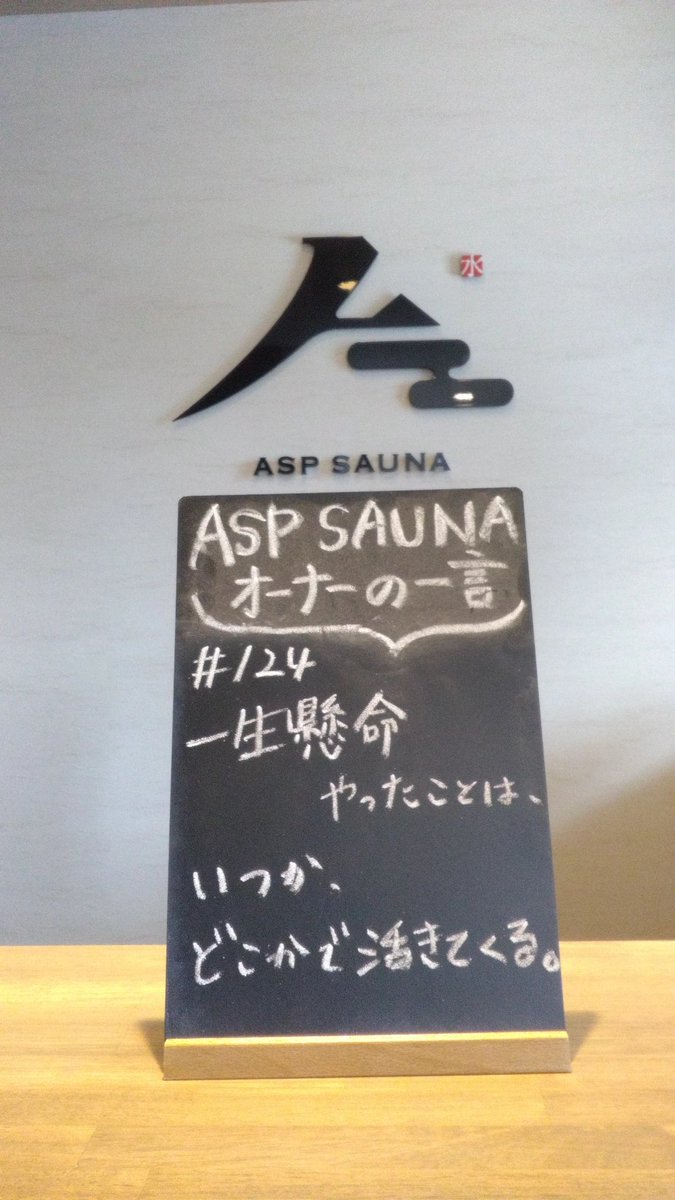 水
ASP SAUNA
ASP SAUNA
オーナーの一言
#124
一生懸命
やったことは、
いつか、
どこかで活きてくる。